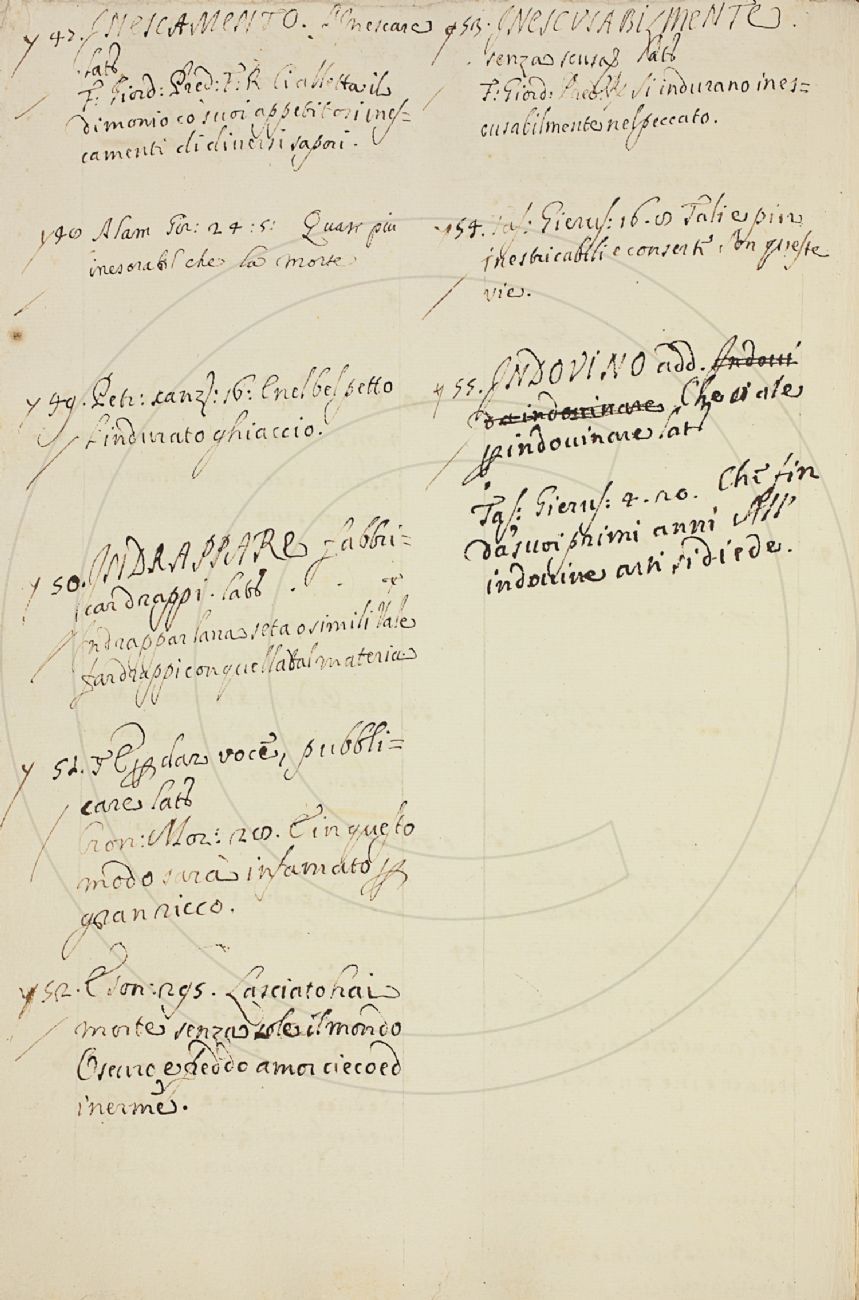 47. INESCAMENTO. L'Inescare
latt
F: Giord: Pred: F. R. Ci alletta il
dimonio co suoi appetitosi ines=
camenti di diversi sapori.
48 Alam Gir: 24:5: Quasi piu
inesorabil che la morte
49. Petr: canz: 16: E nel bel petto
l'indurato ghiaccio.
50. INDRAPPARE fabbri=
car drappi. latt
Indrappar lana seta o simili Vale
far drappi con quella tal materia
51. dar voce, pubbli=
care latt
Cron: Mor: E in questo
modo sarà infamato
gran ricco.
52. E son: 295. Lasciato hai
morte senza sole il mondo
Oscuro e freddo amor cieco ed
inerme.
53. INESCUSABILMENTE.
senza scusa latt
F: Giord: Pred: si indurano ines=
cusabilmente nel peccato.
54. Tas: Gierus: 16. 8 Tali e piu
inestricabili conserte son queste
vie.
55. INDOVINO add. Indovi
da indovinare Che vale
indovinare latt
Tas: Gierus: 4. 20. Che fin
da suoi primi anni All'
indovine arti si diede.